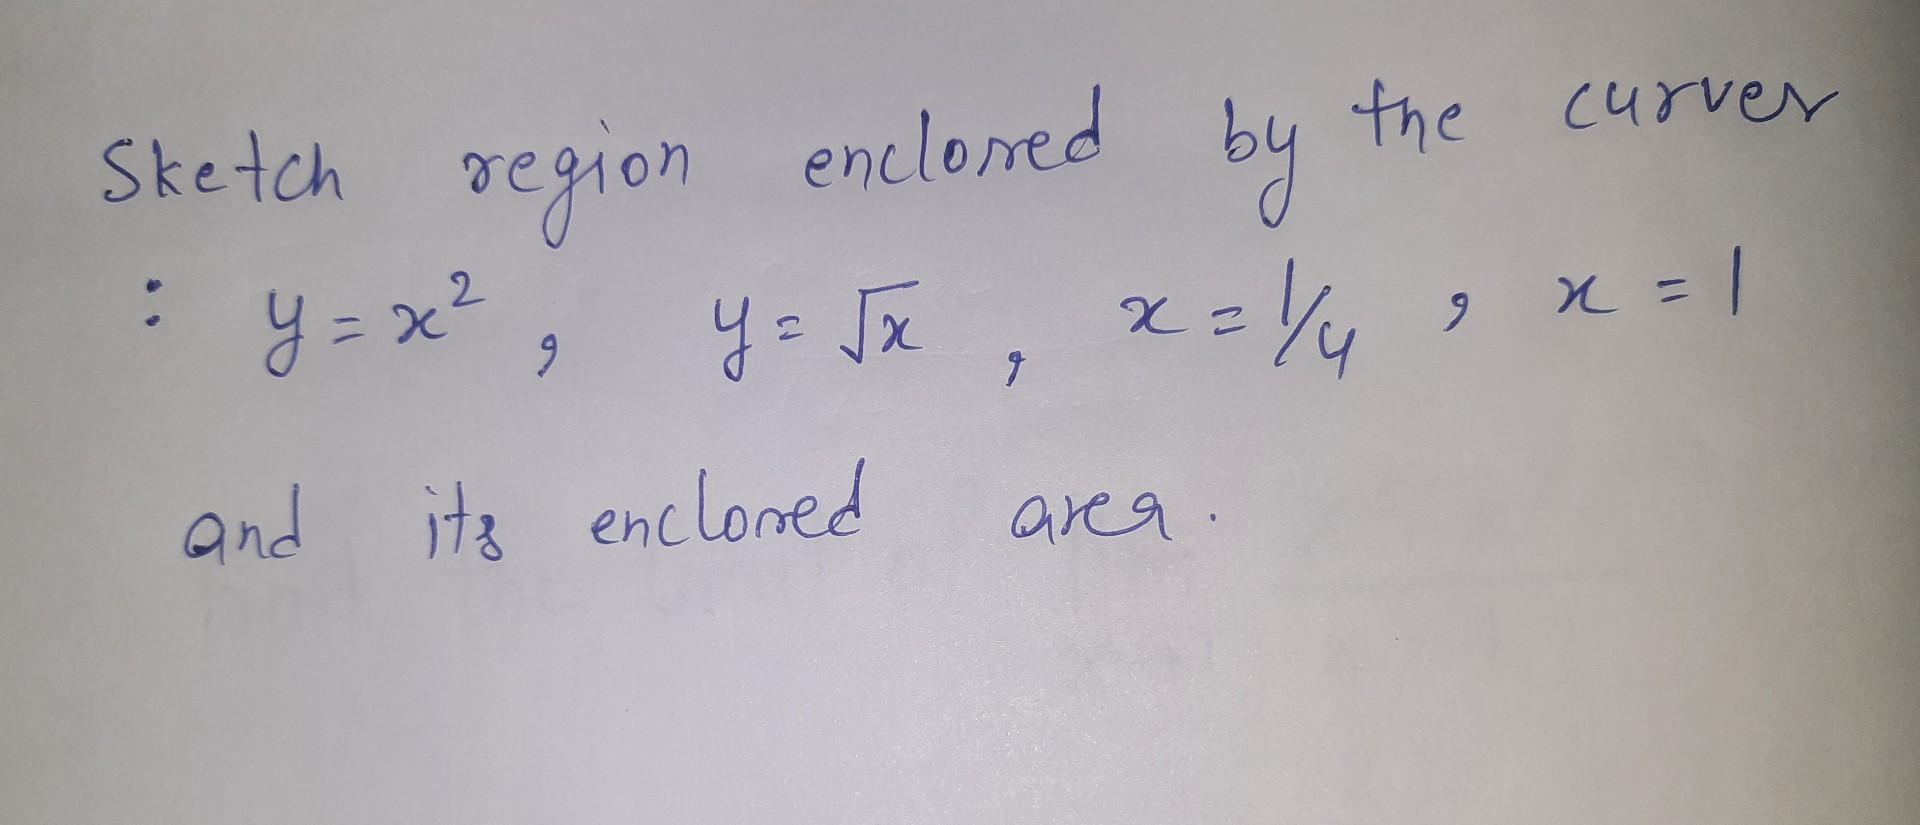 Sketch region enclosed by the curves
: y = x², y = √x, x = 1/4, x = 1
and its enclosed area.